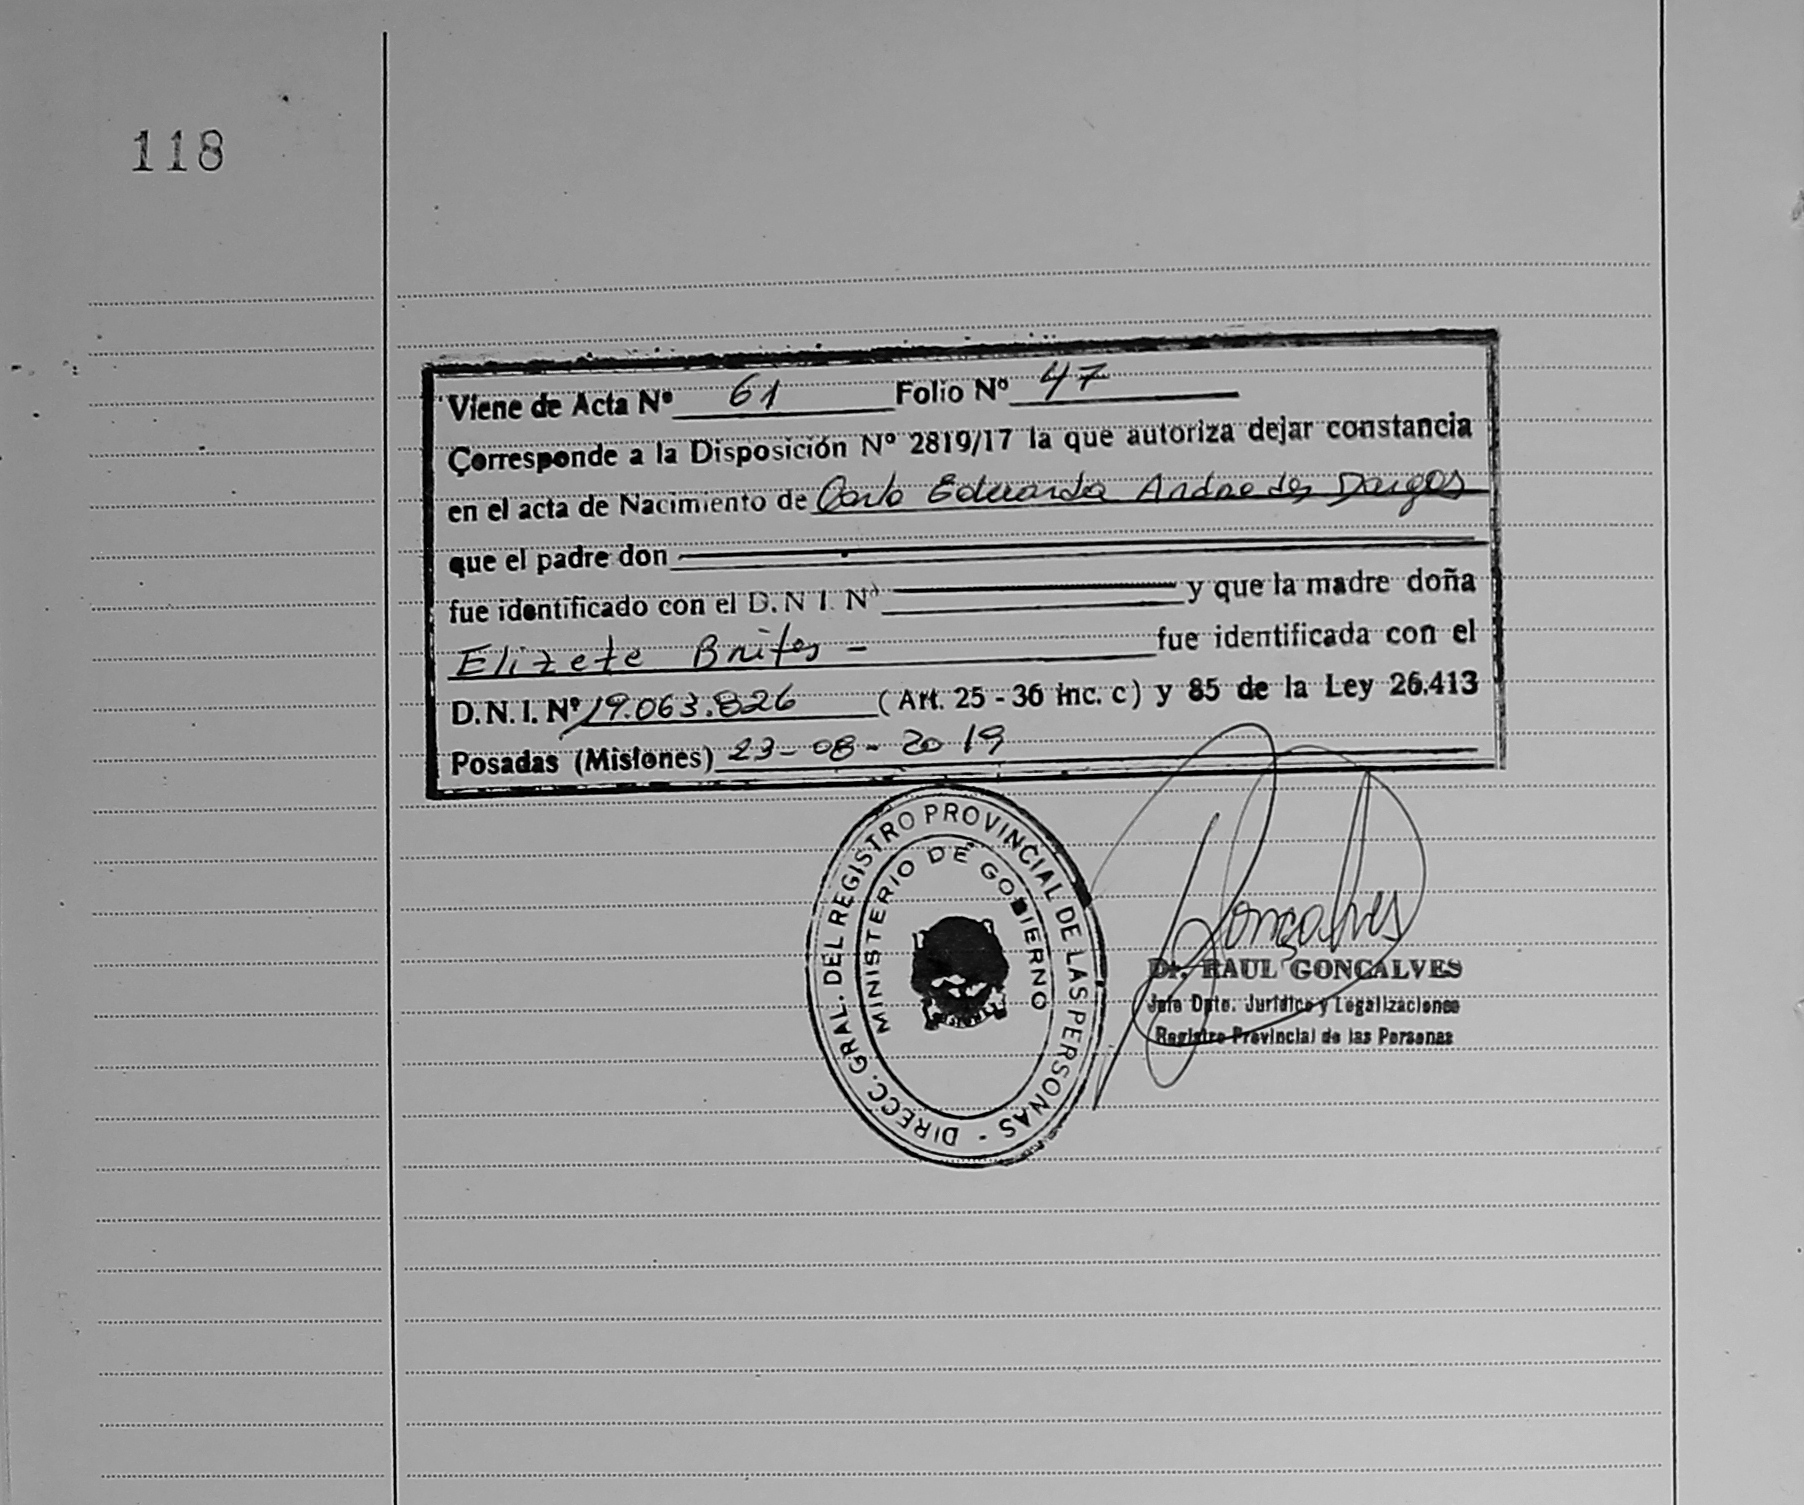 118
Viene de Acta Nº 61 Folio Nº 47
Corresponde a la Disposición Nº 2819/17 la que autoriza dejar constancia
en el acta de Nacimiento de Eduarda
que el padre don
fue identificado con el D.N.I. Nº y que la madre doña
Elizete Brites - fue identificada con el
D.N.I. Nº 19.063.826 (Art. 25 - 36 inc. c) y 85 de la Ley 26.413
Posadas (Misiones) 23-08-2019
DIRECC. GRAL. DEL REGISTRO PROVINCIAL DE LAS PERSONAS -
MINISTERIO DE GOBIERNO
MISIONES
Gonçalves
Dr. RAUL GONCALVES
Jefe Dpto. Jurídico y Legalizaciones
Registro Provincial de las Personas